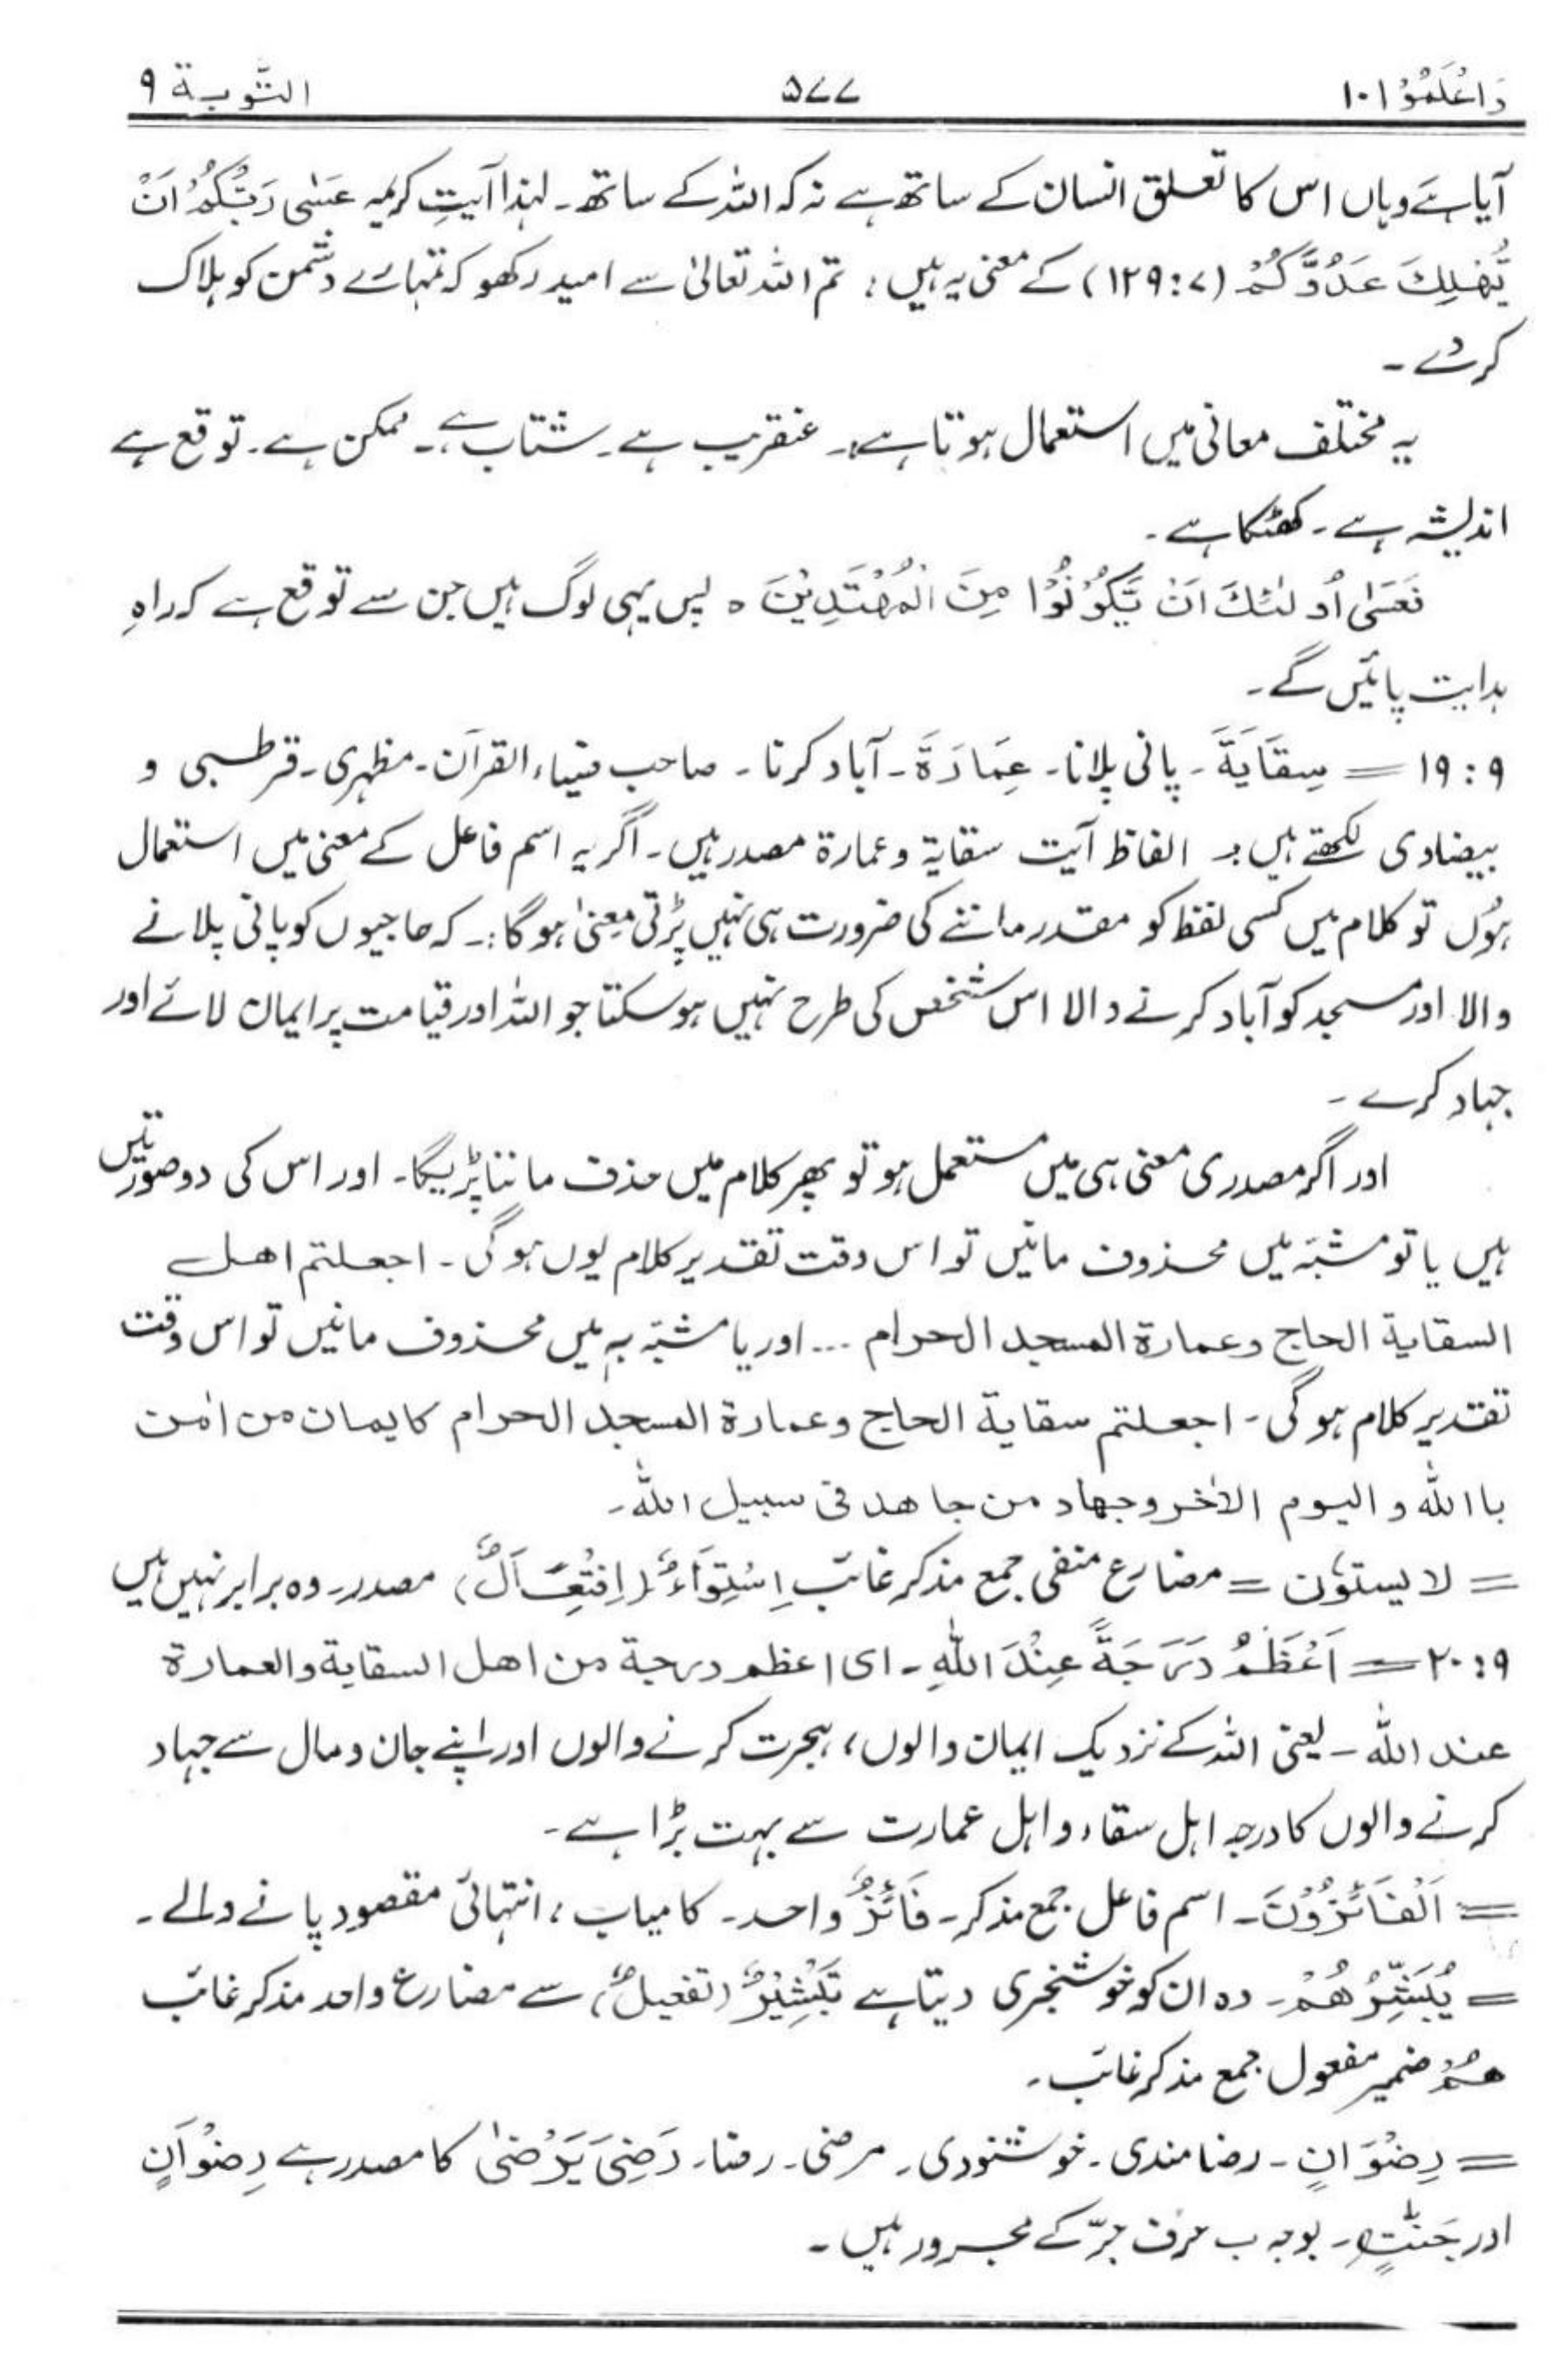 وَاعْلَمُوْا ١٠ ۵۷۷ التَّوبة ٩
آیا ہے وہاں اس کا تعلق انسان کے ساتھ ہے نہ کہ اللہ کے ساتھ۔ لہٰذا آیتِ کریمہ عَسٰی رَبُّكُمْ اَنْ
يُّهْلِكَ عَدُوَّكُمْ (۷: ۱۲۹) کے معنی یہ ہیں: تم اللہ تعالیٰ سے امید رکھو کہ تمہارے دشمن کو ہلاک
کردے۔
یہ مختلف معانی میں استعمال ہوتا ہے:۔ عنقریب ہے۔ شتاب ہے۔ ممکن ہے۔ توقع ہے
اندیشہ ہے۔ کھٹکا ہے۔
فَعَسٰٓى اُولٰٓئِكَ اَنْ يَّكُوْنُوْا مِنَ الْمُهْتَدِيْنَ ہ پس یہی لوگ ہیں جن سے توقع ہے کہ راہِ
ہدایت پائیں گے۔
۹: ۱۹ = سِقَايَةَ۔ پانی پلانا۔ عِمَارَةَ۔ آباد کرنا۔ صاحب ضیاء القرآن۔ مظہری۔ قرطبی و
بیضاوی لکھتے ہیں:۔ الفاظ آیت سقایۃ و عمارۃ مصدر ہیں۔ اگر یہ اسم فاعل کے معنی میں استعمال
ہوں تو کلام میں کسی لفظ کو مقدر ماننے کی ضرورت ہی نہیں پڑتی معنیٰ ہوگا:۔ کہ حاجیوں کو پانی پلانے
والا اور مسجد کو آباد کرنے والا اس شخص کی طرح نہیں ہو سکتا جو اللہ اور قیامت پر ایمان لائے اور
جہاد کرے۔
اور اگر مصدری معنی ہی میں مستعمل ہو تو پھر کلام میں حذف ماننا پڑیگا۔ اور اس کی دو صورتیں
ہیں یا تو مشبّہ میں محذوف مانیں تو اس وقت تقدیر کلام یوں ہوگی۔ اجعلتم اهل
السقاية الحاج وعمارة المسجد الحرام ... اور یا مشبّہ بہ میں محذوف مانیں تو اس وقت
تقدیر کلام ہوگی۔ اجعلتم سقاية الحاج وعمارة المسجد الحرام كايمان من اٰمن
با الله و اليوم الاٰخر وجهاد من جاهد فى سبيل الله۔
= لا يستوٗن = مضارع منفی جمع مذکر غائب اِسْتِوَآءٌ (اِفْتِعَالٌ) مصدر۔ وہ برابر نہیں ہیں
۹: ۲۰ = اَعْظَمُ دَرَجَةً عِنْدَ اللهِ۔ ای اعظم درجة من اهل السقاية والعمارة
عند الله۔ یعنی اللہ کے نزدیک ایمان والوں، ہجرت کرنے والوں اور اپنے جان و مال سے جہاد
کرنے والوں کا درجہ اہل سقاء و اہل عمارت سے بہت بڑا ہے۔
= اَلْفَآئِزُوْنَ۔ اسم فاعل جمع مذکر۔ فَآئِزٌ واحد۔ کامیاب، انتہائی مقصود پانے والے۔
= يُبَشِّرُهُمْ۔ وہ ان کو خوشخبری دیتا ہے تَبْشِيْرٌ (تفعیلٌ) سے مضارع واحد مذکر غائب
هُمْ ضمیر مفعول جمع مذکر غائب۔
= رِضْوَانٍ۔ رضا مندی۔ خوشنودی۔ مرضی۔ رضا۔ رَضِىَ يَرْضٰى کا مصدر ہے رِضْوَانٍ
اور جَنّٰتٍ۔ بوجہ ب حرف جرّ کے مجرور ہیں۔